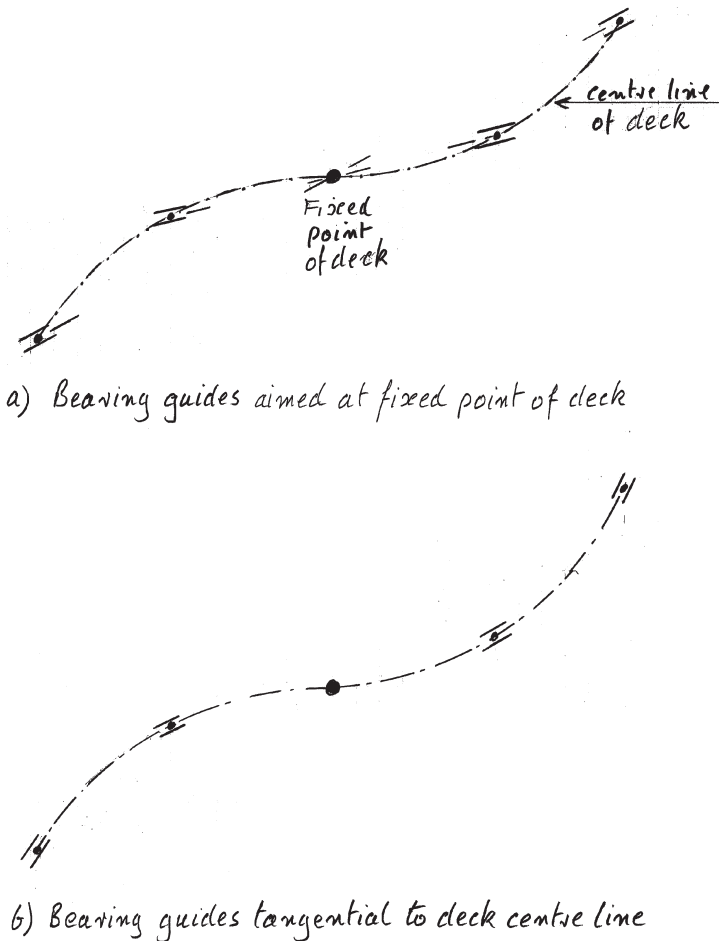 centre line
of deck
Fixed
point
of deck
a) Bearing guides aimed at fixed point of deck
b) Bearing guides tangential to deck centre line